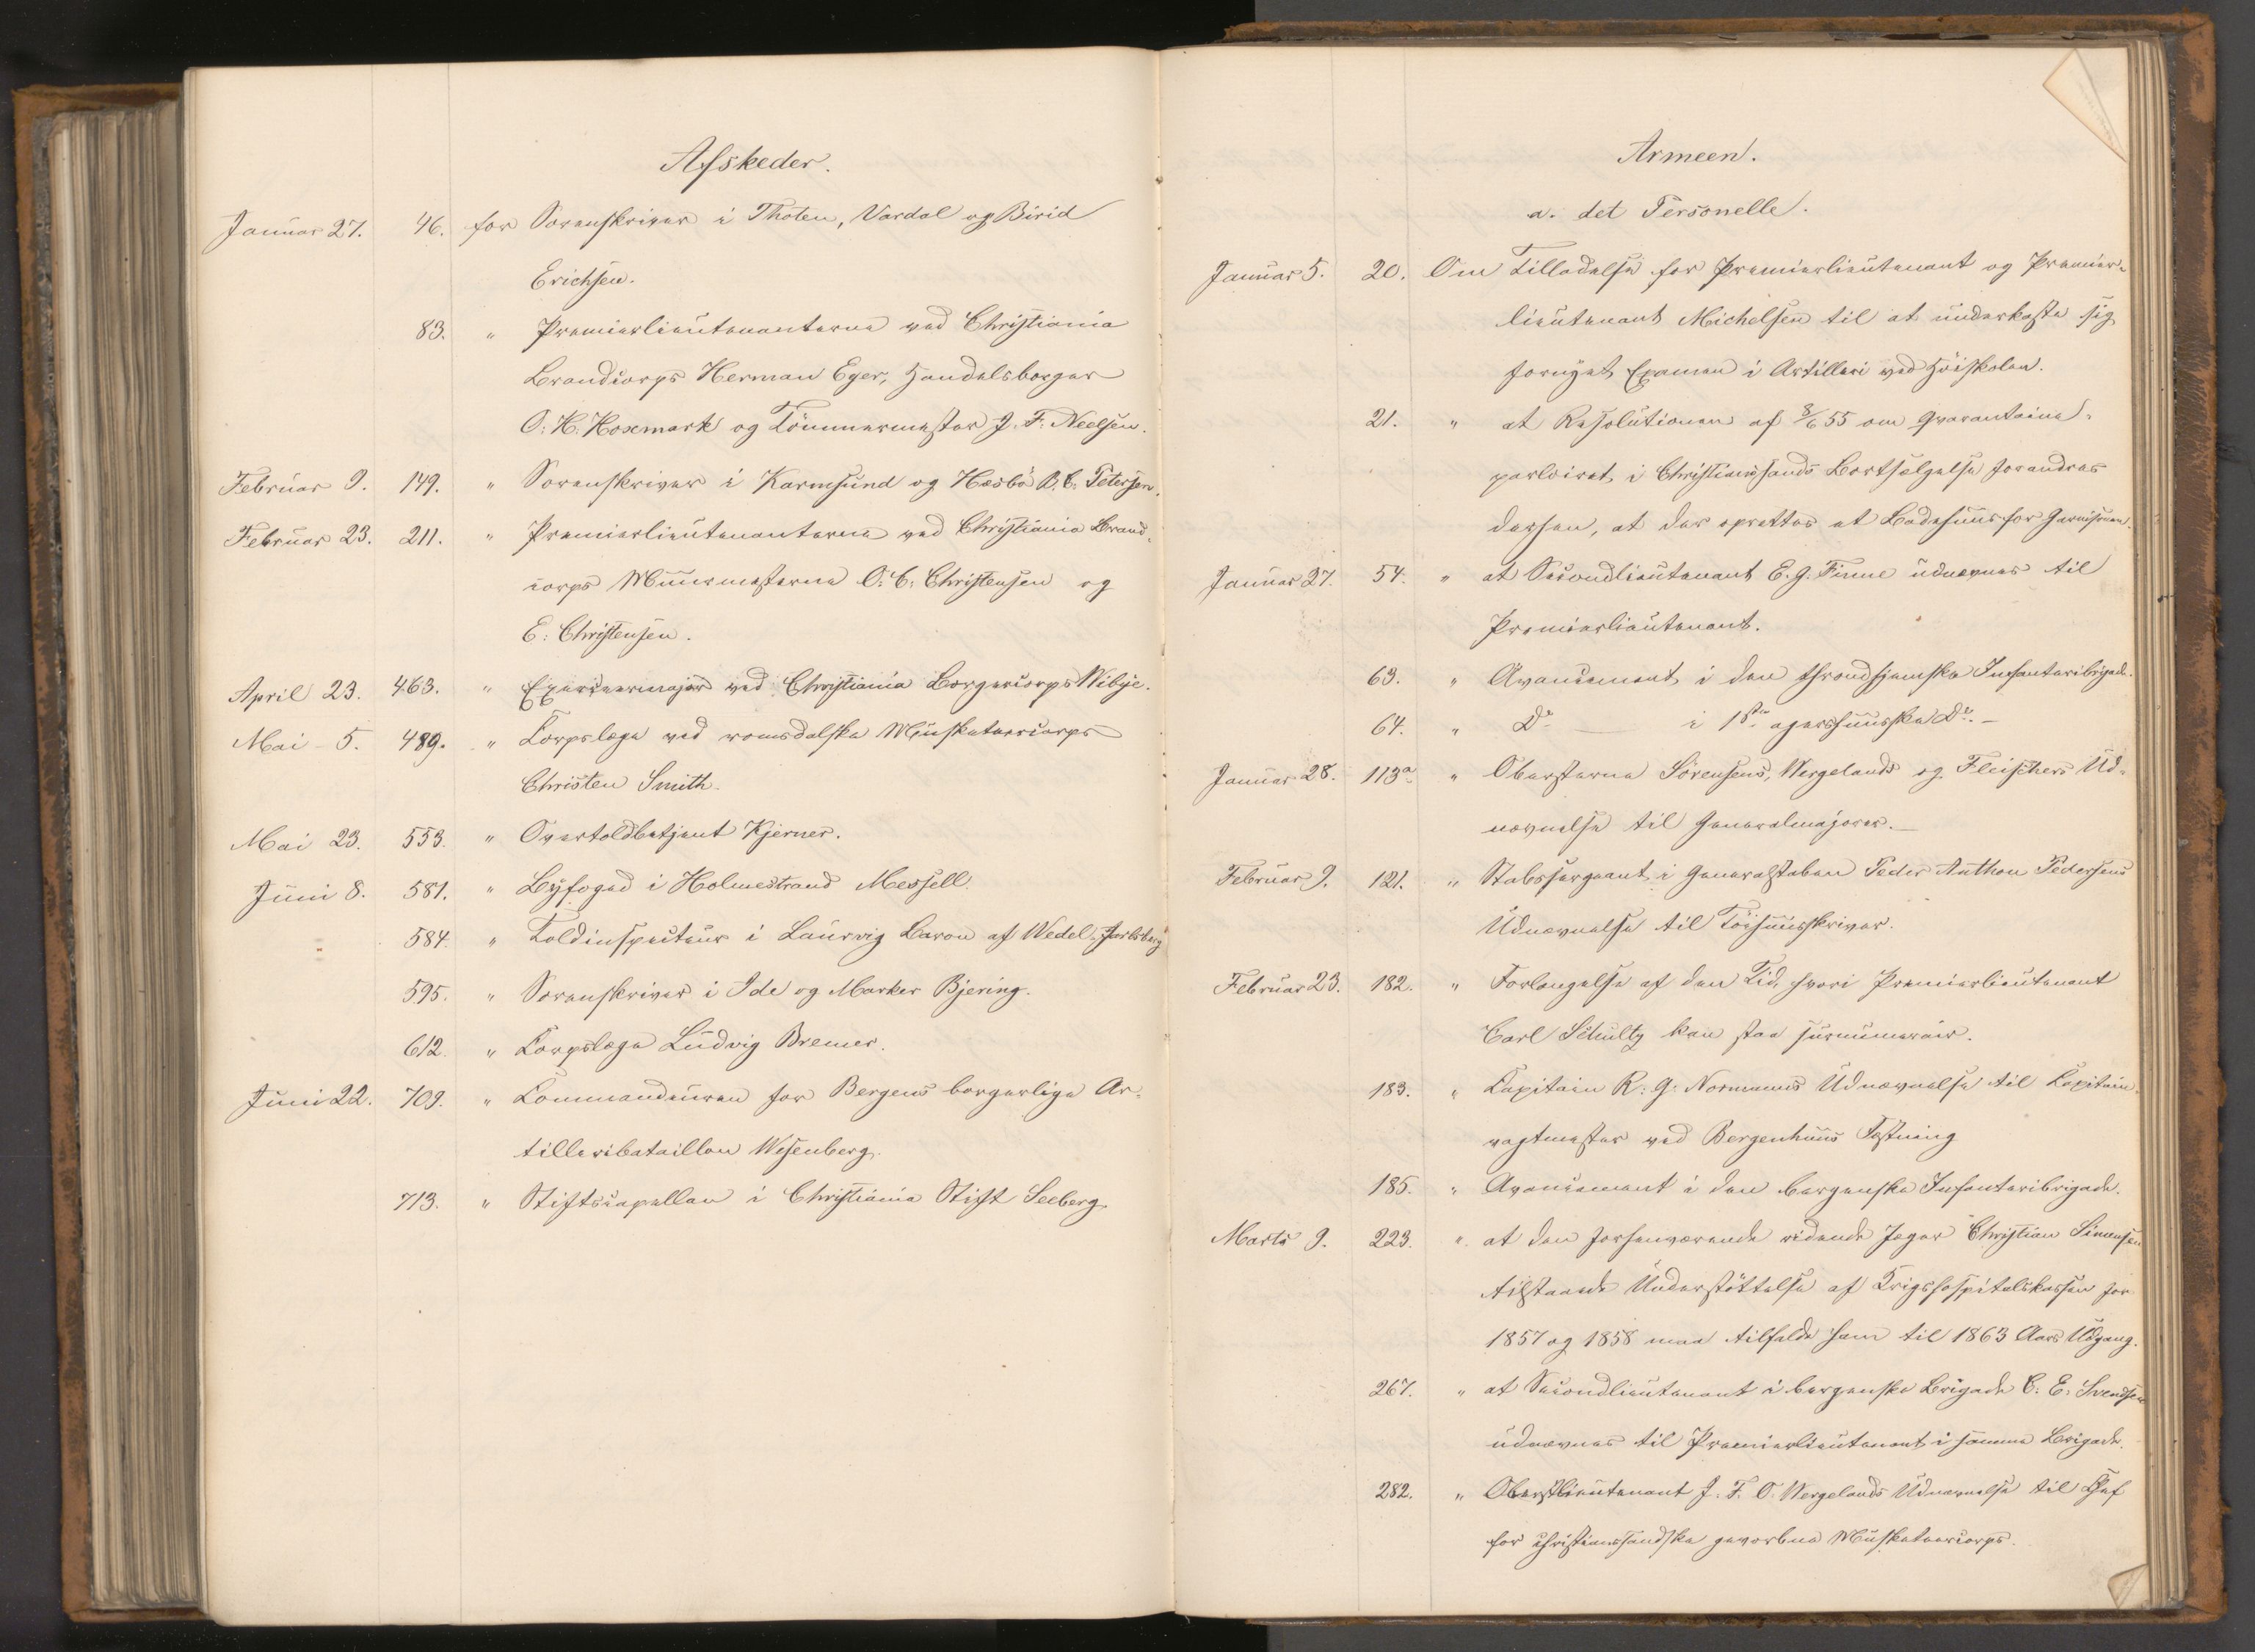 Afskeder.
Januar 27. 46. for Sorenskriver i Thoten, Vardal og Birid
Erichsen.
83. " Premierlieutenanterne ved Christiania
Brandcorps Herman Eger, Handelsborger
O. H. Hoxmark og Tömmermester J. F. Neelsen.
Februar 9. 149. " Sorenskriver i Karmsund og Hæsbö P. C. Petersen.
Februar 23. 211. " Premierlieutenanterne ved Christiania Brand-
corps Muurmesterne O. C. Christensen og
E. Christensen.
April 23. 463. " Exerceermajor ved Christiania Borgercorps Wibye.
Mai 5. 489. " Corpslæge ved romsdalske Musketeercorps
Christen Smith.
Mai 23. 553. " Overtoldbetjent Kjerner.
Juni 8. 581. " Byfoged i Holmestrand Messell.
584. " Toldinspecteur i Laurvig Baron af Wedel-Jarlsberg
595. " Sorenskriver i Ide og Marker Bjering.
612. " Corpslæge Ludvig Bremer.
Juni 22. 709. " Commandeuren for Bergens borgerlige Ar-
tilleribataillon Wesenberg.
713. " Stiftscapellan i Christiania Stift Seeberg
Armeen.
a. det Personelle.
Januar 5. 20. Om Tilladelse for Premierlieutenant og Premier-
lieutenant Michelsen til at underkaste sig
fornyet Examen i Artilleri ved Höiskolen.
21. " at Resolutionen af 8/6 55 om Qvarantaine-
parloiret i Christianssands Bortsælgelse forandres
derhen, at der oprettes et Badehuus for Garnisonen.
Januar 27. 54. " at Secondlieutenant E. G. Finne udnævnes til
Premierlieutenant.
63. " Avancement i den throndhjemske Infanteribrigade.
64. " Do i 1ste agershuusske Do.
Januar 28. 113a " Obersterne Sörensens, Wergelands og Fleischers Ud-
nævnelse til Generalmajorer.
Februar 9. 121. " Stabssergeant i Generalstaben Peder Anthon Pedersens
Udnævnelse til Töihuusskriver.
Februar 23. 182. " Forlængelse af den Tid, hvori Premierlieutenant
Carl Schultz kan staa surnumerair.
183. " Capitain R. G. Normanns Udnævnelse til Capitain-
vagtmester ved Bergenhuus Fæstning
185. " Avancement i den bergenske Infanteribrigade.
Marts 9. 223. " at den forhenværende ridende Jæger Christian Simensen
tilstaaede Understöttelse af Krigshospitalskassen for
1857 og 1858 maa tilfalde ham til 1863 Aars Udgang.
267. " at Secondlieutenant i bergenske Brigade C. E. Svendsen
udnævnes til Premierlieutenant i samme Brigade.
282. " Oberstlieutenant J. F. O. Wergelands Udnævnelse til Chef
for christianssandske gevorbne Musketeercorps.